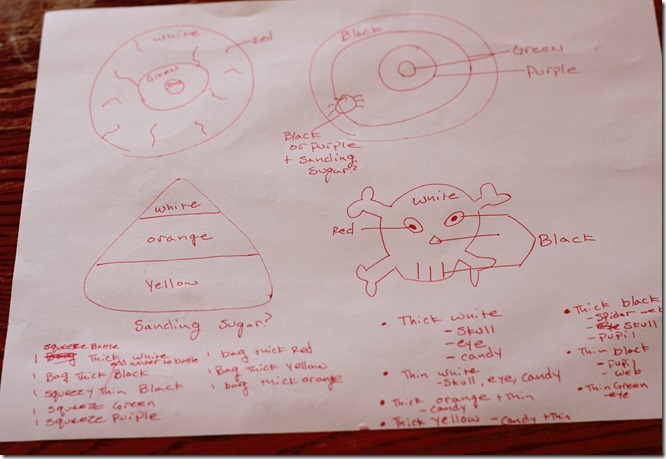 white
Red
Green
Black
Green
Purple
Black
or purple
+ Sanding
Sugar?
white
orange
yellow
Sanding Sugar?
white
Red
Black
squeeze Bottle
1 Bag Thick white
add water to bottle
1 Bag Thick Black
1 squeezy Thin Black
1 squeeze Green
1 squeeze Purple
1 bag thick Red
1 Bag Thick Yellow
1 bag thick orange
• Thick white
- Skull
- eye
- candy
• Thin white
- Skull, eye, candy
• Thick orange + thin
- candy
• Thick yellow - candy + thin
• Thick black
- Spidar web
- eye Skull
- pupil
• Thin black
- pupil
- web
• Thin Green
- eye